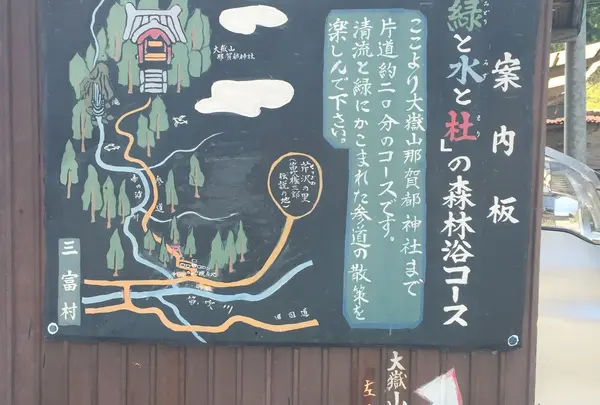 案内板
緑と水と杜」の森林浴コース
みどり
みず
もり
ここより大嶽山那賀都神社まで
片道約二〇分のコースです。
清流と緑にかこまれた参道の散策を
楽しんで下さい。
大嶽山
那賀都神社
滝
参道
芹沢の里
伝説の地)
旧国道
三富村
大嶽山
左